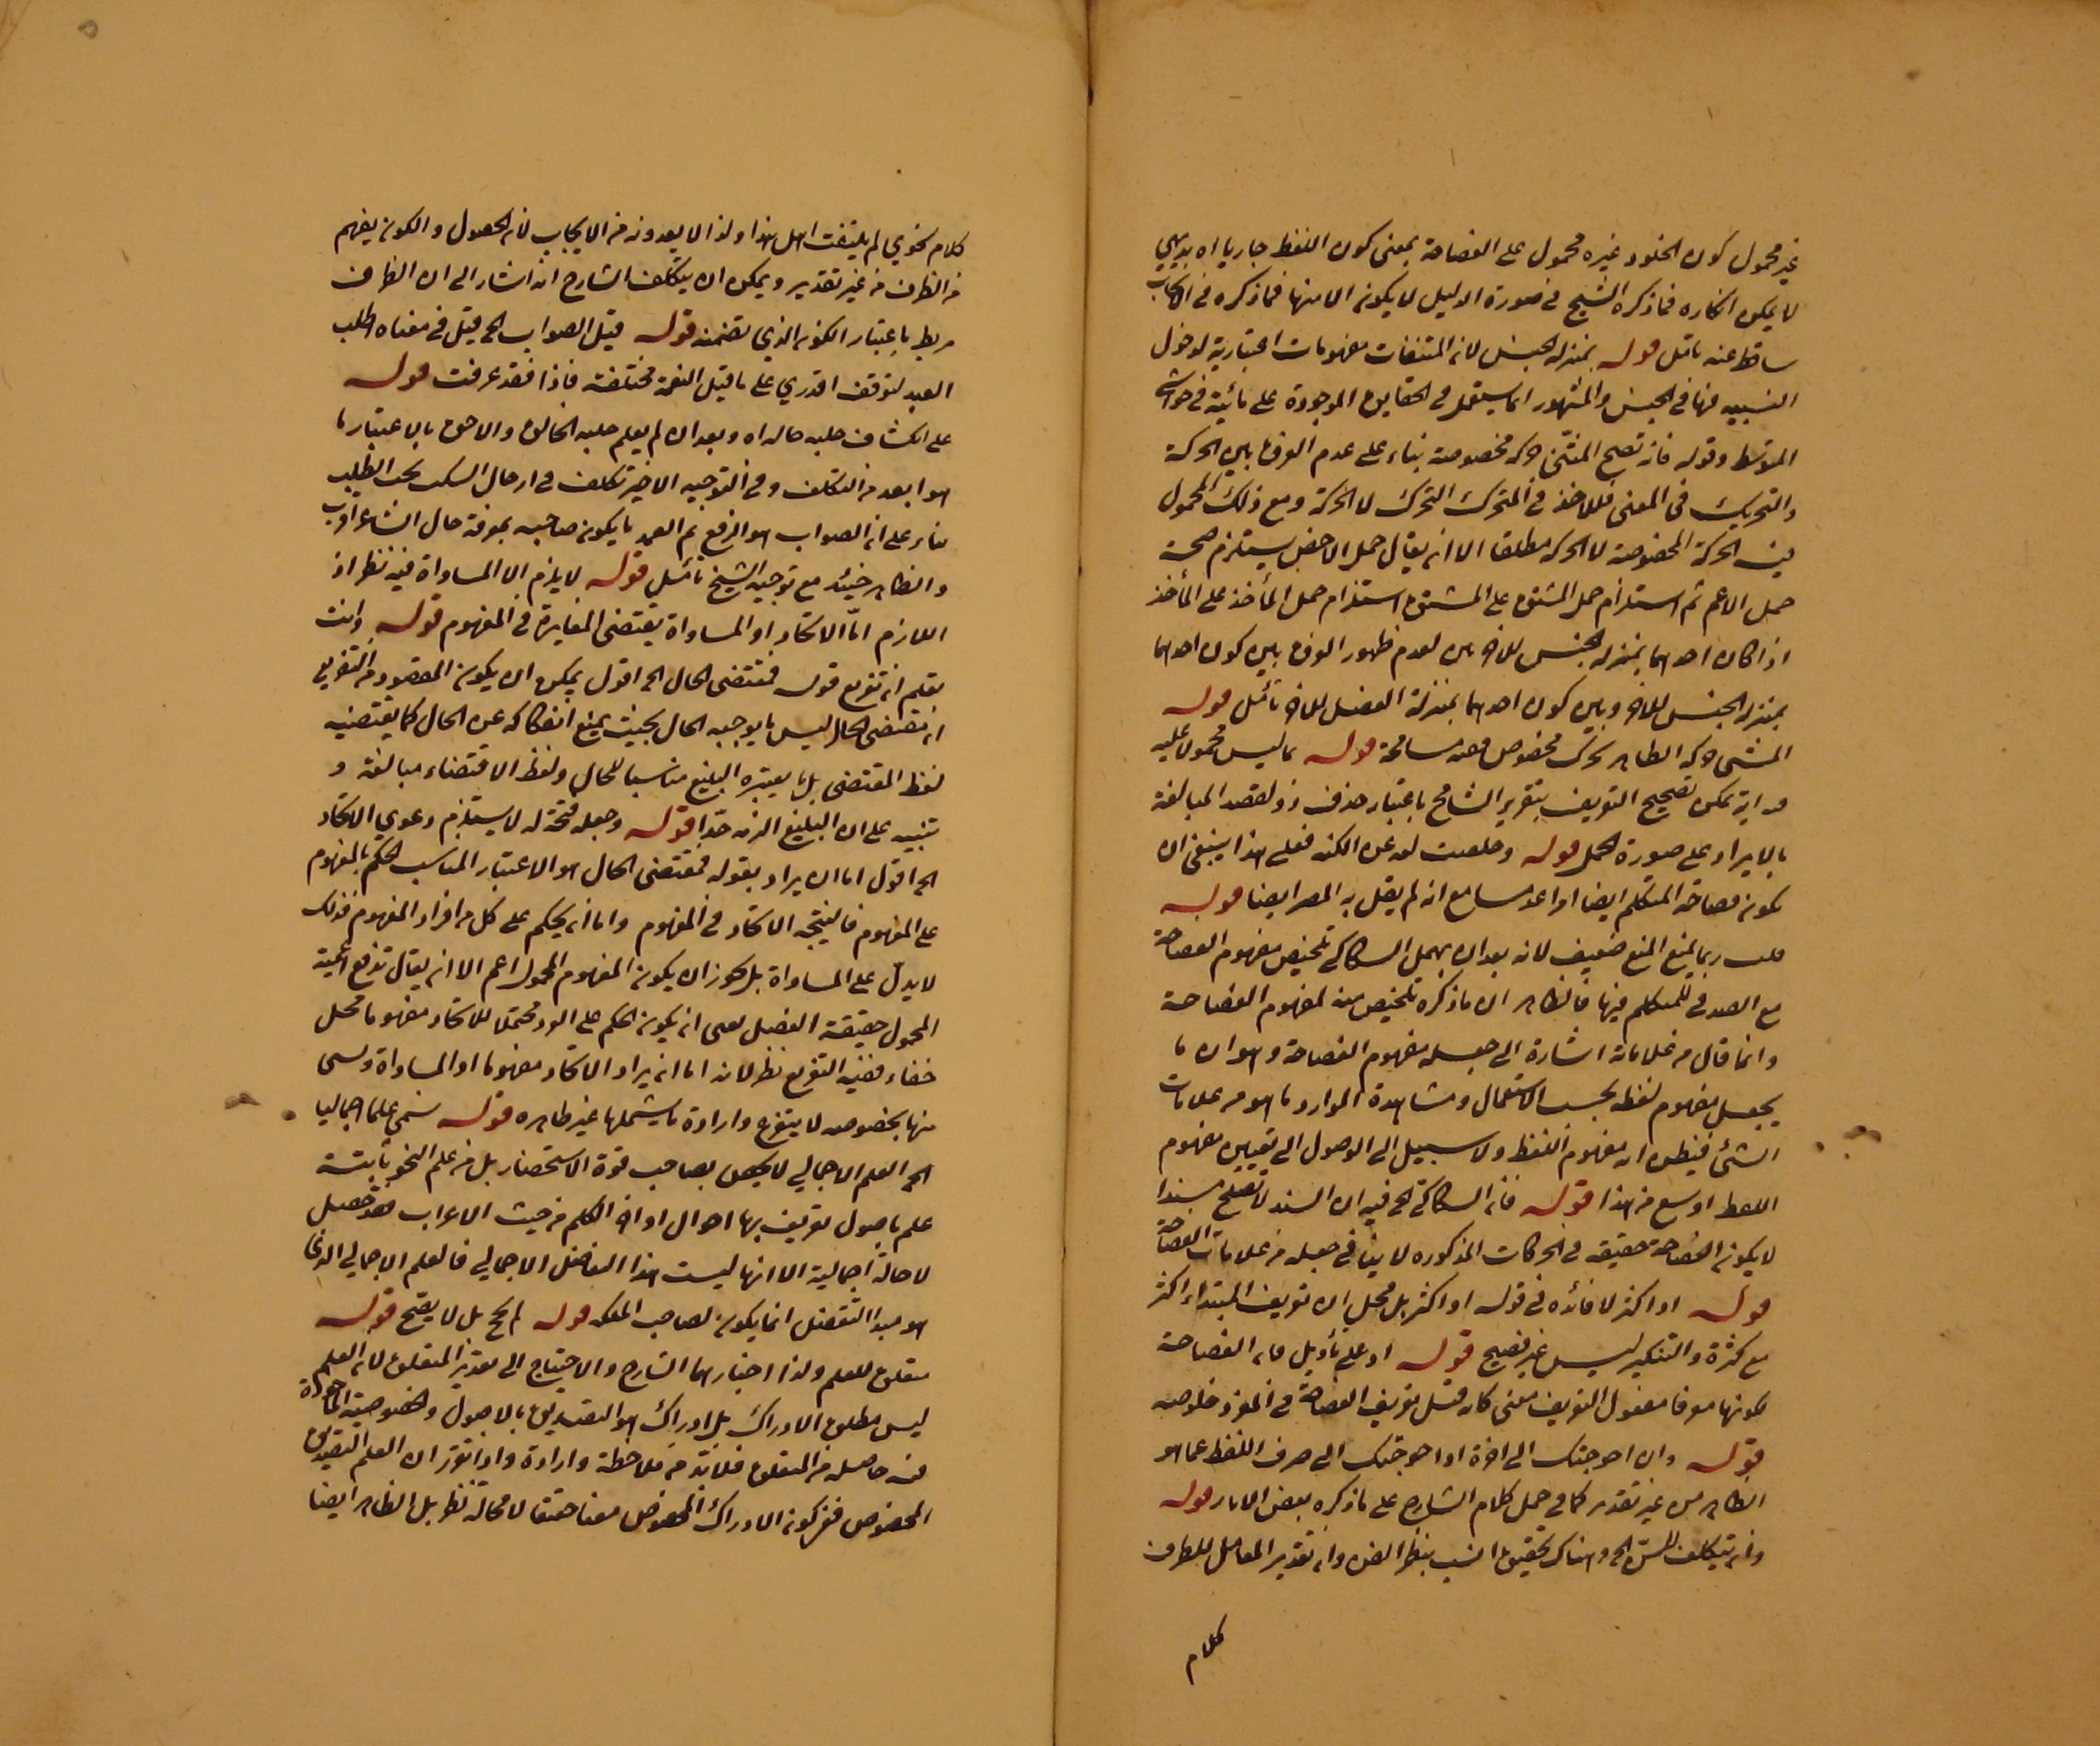 غير محمول كون الخلود غيره محمول على الفصاحة بمعنى كون اللفظ جاريا اه بديهي
لا يمكن انكاره فماذكره الشيخ في صورة الدليل لا يكون الا منها فماذكره في الكتاب
ساقط عنه تأمل قوله بمنزلة الجنس لان المشتقات مفهومات اعتبارية لدخول
النسبة فيها في الجنس والمشهور انما يستعمل في الحقايق الموجودة على ما بينه في حواشي
المتوسط وقوله فانه تصح المشي حركة مخصوصة بناء على عدم الفرق بين الحركة
والتحريك في المعنى فالمأخذ في المتحرك التحرك لا الحركة ومع ذلك المحمول
هذه الحركة المخصوصة لا الحركة مطلقا الا ان يقال حمل الاخص يستلزم صحة
حمل الاعم ثم استلزام حمل المشتق على المشتق استلزام حمل المأخذ على المأخذ
اذا كان احدهما بمنزلة الجنس للاخر ليس لعدم ظهور الفرق بين كون احدهما
بمنزلة الجنس للاخر وبين كون احدهما بمنزلة الفصل للاخر تأمل قوله
المشي حركة الظاهر تحرك مخصوص ففيه مسامحة قوله بما ليس محمولا عليه
يمكن تصحيح التعريف بتقرير الشارح باعتبار حذف ذو لقصد المبالغة
بالايراد على صورة الحمل قوله وخلصت لغة عن اللكنة فعلى هذا ينبغي ان
يكون فصاحة المتكلم ايضا مع انه لم يقل به المصر ايضا قوله
قلت ربما يمنع المنع ضعيف لانه بعد ان يهمل السكاكي تلخيص مفهوم الفصاحة
مع الصدق للمتكلم فيها فالظاهر ان ماذكره تلخيص منه لمفهوم الفصاحة
وانما قال من علاماته اشارة الى جعله مفهوم الفصاحة وهو ان ما
يجعل مفهوم لفظ بحسب الاستعمال ومشاهدة الموارد ما هو من علامات
الشئ فيظن انه مفهوم اللفظ ولا سبيل الى الوصول الى تعيين مفهوم
اللفظ اوسع من هذا قوله فان السكاكي الخ فيه ان السند لا يصلح سندا
لا يكون الفصاحة حقيقة في الحركات المذكورة لا ينافي جعله من علامات الفصاحة
قوله او اكثر لا فائدة في قوله او اكثر بل مخل ان تعريف المبتداء اكثر
مع كثرة والتنكير ليس غير فصيح قوله او على تأويل فان الفصاحة
لكونها معرفا مفعول التعريف معنى كانه قيل تعريف الفصاحة في المفرد خلوصه
قوله وان احوجتك الى اخره اذا احوجتك الى صرف اللفظ عما هو
الظاهر من غير تقدير كما في حمل كلام الشارح على ماذكره بعض قوله
وان تتكلف الخ وهناك تحقيق انسب بنظم الفن وان تقدير العامل للظرف
كلام
كلام نحوي لم يلتفت اهل هذا ولذا لا يعدونه من الايجاب لان الحصول والكون يفهم
من الظرف من غير تقدير ويمكن ان يتكلف الشارح انه اشار الى ان الظرف
مربط باعتبار الكون الذي تضمنه قوله قيل الصواب الخ قيل في معناه اطلب
العبد لتوقف اقدري على ما قيل النغمة مختلفة فاذا فقد عرفت قوله
على انكشاف جلية حاله اه وبعد ان لم يعلم جلية الخالق والاحق بالاعتبار ما
هو ابعد من التكلف وفي التوجيه الاخير تكلف في السكت بحث الطلب
بناء على ان الصواب هو الرفع ثم العمد ما يكون صاحبه بمعرفة حال الشاعر اقرب
والظاهر حينئذ مع توجيه الشيخ تأمل قوله لا يلزم الا المساواة فيه نظر اذ
اللازم امّا الاتحاد او المساواة يقتضى المغايرة في المفهوم قوله وانت
تعلم ان تفريع قوله فمقتضى الحال الخ اقول يمكن ان يكون المقصود من التفريع
ان مقتضى الحال ليس ما يوجبه الحال بحيث يمتنع انفكاكه عن الحال كما يقتضيه
لفظ المقتضى بل ما يعتبره البليغ مناسبا للحال ولفظ الاقتضاء مبالغة و
تنبيه على ان البليغ الزمه جدا قوله وجعله فتحة له لا يستلزم دعوي الاتحاد
الخ اقول اما ان يراد بقوله فمقتضى الحال هو الاعتبار المناسب الحكم بالمفهوم
على المفهوم فاينتجه الاتحاد في المفهوم واما ان يحكم على كل من افراد المفهوم فذلك
لا يدلّ على المساواة بل يجوز ان يكون المفهوم المحمول اعم الا ان يقال تدفع اعمية
المحمول حقيقة الفصل يعنى ان يكون الحكم على الفرد محتملا للاتحاد مفهوما محل
خفاء ففيه التفريع نظر لانه اما ان يراد الاتحاد مفهوما او المساواة وليس
منها بخصوصه لا يتفرع وارادة ما يشملها غير ظاهره قوله سمي علما اجماليا
الخ العلم الاجمالي لا يخص بصاحب قوة الاستحضار بل من علم النحو ثابتة
علم باصول تعريف بها احوال اواخر الكلم من حيث الاعراب فقد حصل
لا حالة اجمالية الا انها ليست هذا التفاصيل الاجمالي فالعلم الاجمالي الذي
هو مبدأ التفصيل انما يكون لصاحب الملكة قوله الخ بل لا يصح قوله
متعلق للعلم ولذا اختارها الشارح والاحتياج الى تقدير المتعلق لان العلم
ليس مطلق الادراك بل ادراك هو التصديق بالاصول وخصوصية المادة
فيه حاصلة من المتعلق فلابدّ من ملاحظة وارادة واذا تقرر ان العلم التصديق
المخصوص ففي كون الادراك المخصوص معنا حقيقا لا محالة نظر بل الظاهر ايضا